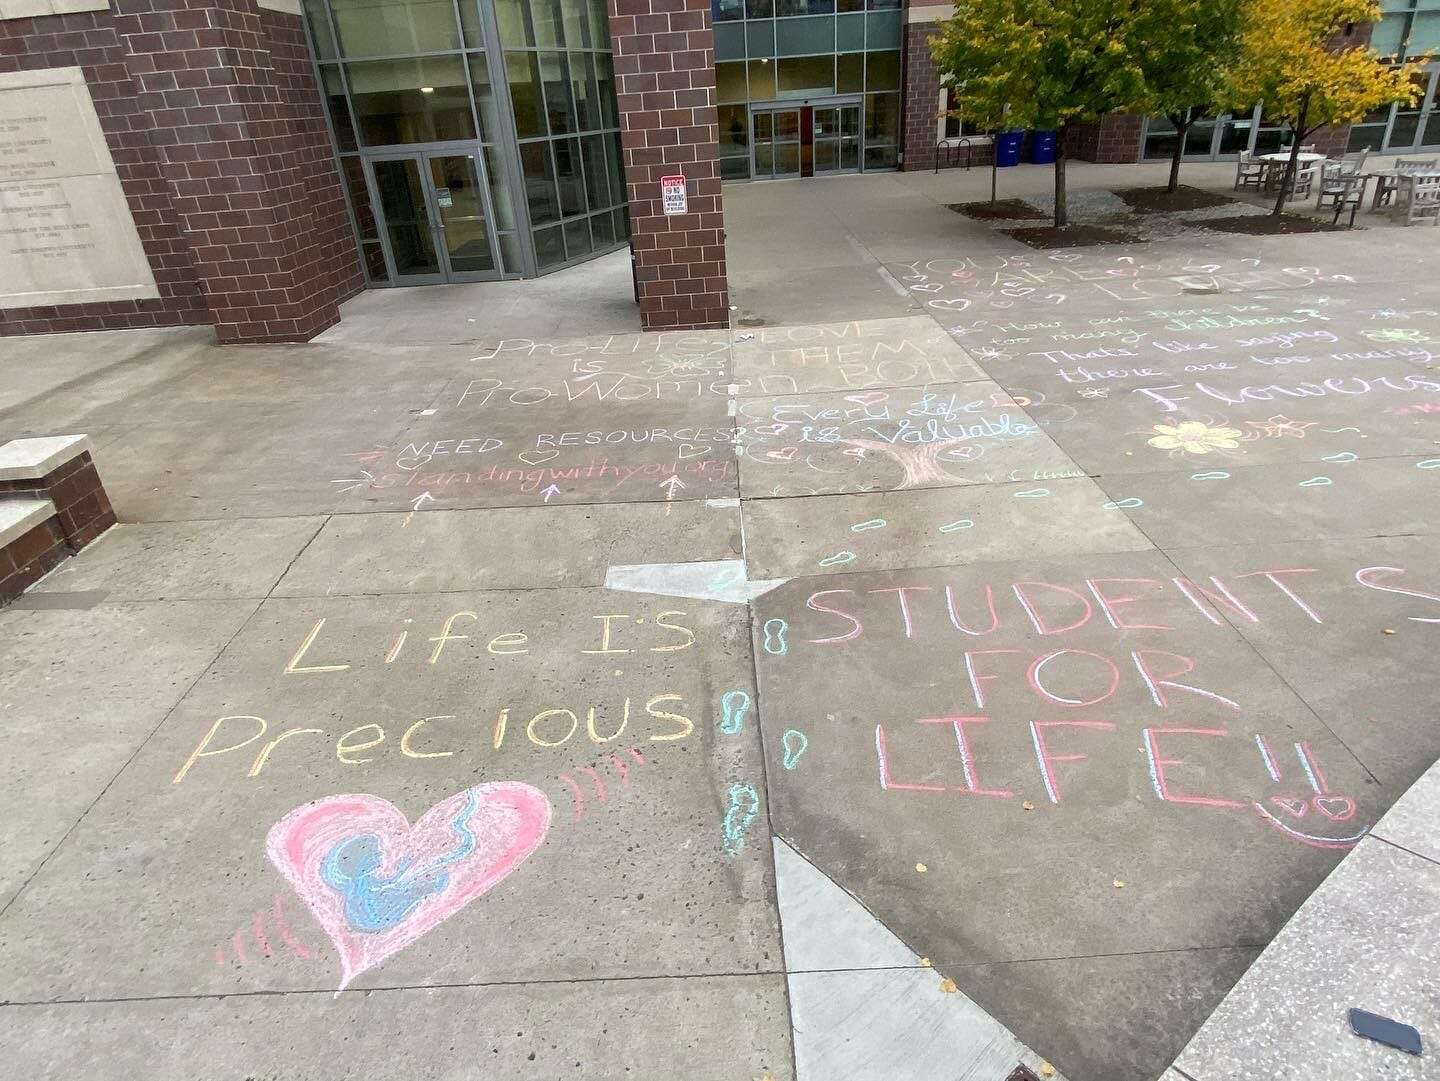 NOTICE
NO
SMOKING
YOU ARE
LOVED
How can there be
too many children?
Thats like saying
there are too many
Flowers
Pro-LIFE
is
Pro-Women
LOVE
THEM
BOTH
Every Life
is Valuable
NEED RESOURCES?
Standingwithyou.org
Life IS
Precious
STUDENTS
FOR
LIFE!!